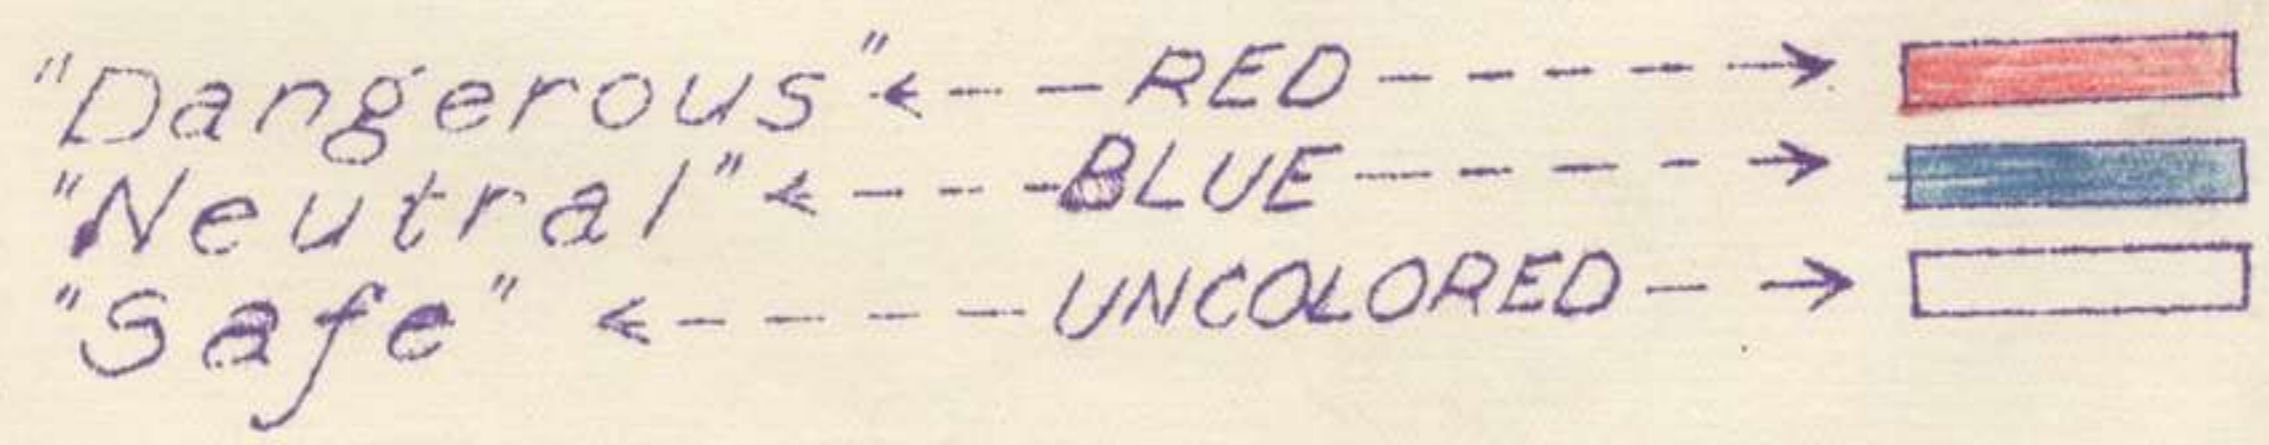 "Dangerous" <-- - RED - - - - - -->
"Neutral" <- - - - BLUE - - - - - ->
"Safe" <- - - - - UNCOLORED - ->